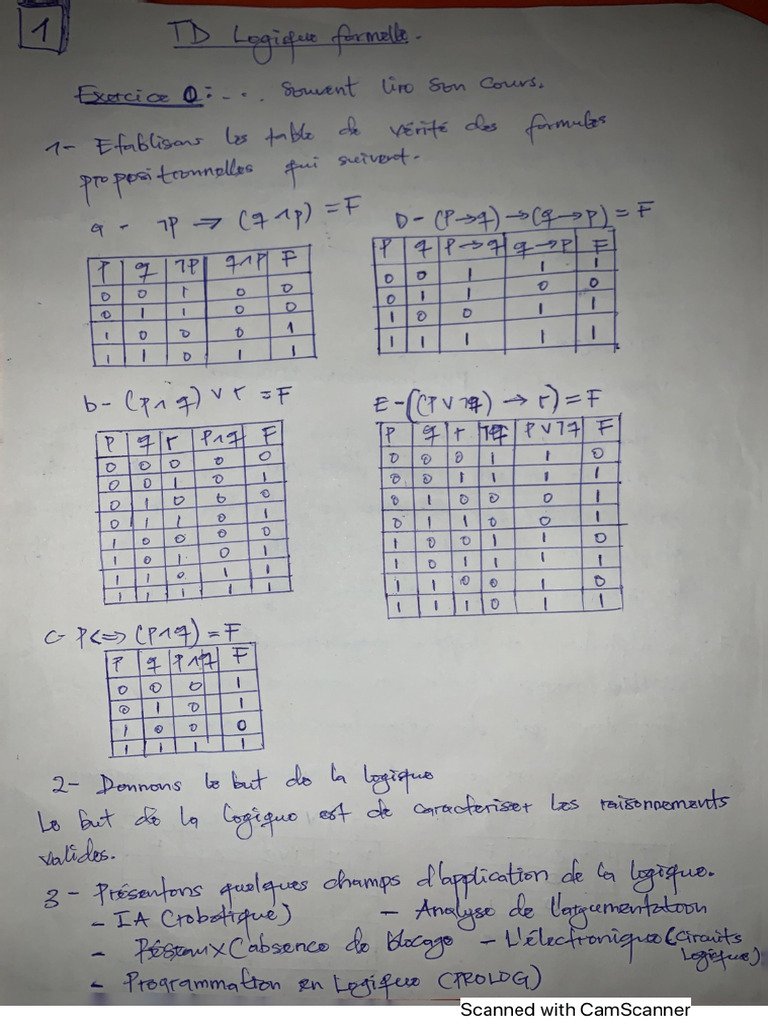 1
TD Logique formelle.
Exercice 0: -... souvent lire son cours.
1- Etablisons les table de vérité des formules
propositionnelles qui suivent.
a - ¬P → (q ∧ p) = F
P q ¬P q∧P F
0 0 1 0 0
0 1 1 0 0
1 0 0 0 1
1 1 0 1 1
D - (P→q)→(q→p) = F
P q P→q q→P F
0 0 1 1 1
0 1 1 0 0
1 0 0 1 1
1 1 1 1 1
b - (P∧q) ∨ r = F
P q r P∧q F
0 0 0 0 0
0 0 1 0 1
0 1 0 0 0
0 1 1 0 1
1 0 0 0 0
1 0 1 0 1
1 1 0 1 1
1 1 1 1 1
E - ((P∨¬q) → r) = F
P q r ¬q P∨¬q F
0 0 0 1 1 0
0 0 1 1 1 1
0 1 0 0 0 1
0 1 1 0 0 1
1 0 0 1 1 0
1 0 1 1 1 1
1 1 0 0 1 0
1 1 1 0 1 1
C- P<=> (P∧q) = F
P q P∧q F
0 0 0 1
0 1 0 1
1 0 0 0
1 1 1 1
2- Donnons le but de la logique
Le but de la logique est de caracteriser les raisonnements
valides.
3 - Présentons quelques champs d'application de la logique.
- IA (robotique) - Analyse de l'argumentatoon
- Réseaux (absence de blocage - L'électronique (circuits
logique)
- Programmation en Logique (PROLOG)
Scanned with CamScanner